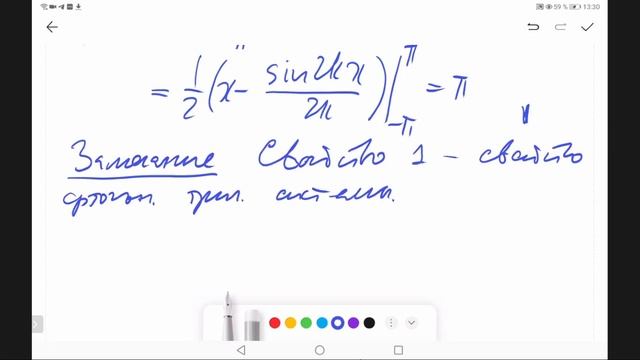 59 % 13:30
= 1/2 (x - sin2kx/2k)|_{-π}^{π} = π
Замечание Свойство 1 - свойство
ортогон. триг. системы.